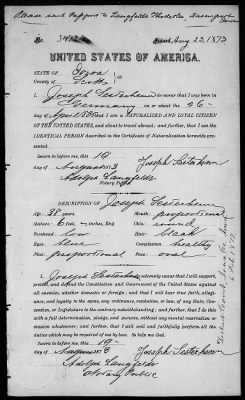 Please send Passport to Langfeldt Davenport
Iowa
No. Issued Aug 22, 1873
UNITED STATES OF AMERICA.
STATE OF Iowa
COUNTY OF Scott
I, Joseph, do swear that I was born in
Germany on or about the 26
day of April 1835; that I am a NATURALIZED AND LOYAL CITIZEN
OF THE UNITED STATES, and about to travel abroad, and further, that I am the
IDENTICAL PERSON described in the Certificate of Naturalization herewith
presented.
Sworn to before me, this 19
day of August 1873 Joseph
Adolph Langfeldt
Notary Public
DESCRIPTION OF Joseph
Age: 38 years. Mouth: proportional
Stature: 6 feet inches, Eng. Chin: round
Forehead: low Hair: black
Eyes: blue Complexion: healthy
Nose: proportional Face: oval
I, Joseph, solemnly swear that I will support,
protect, and defend the Constitution and Government of the United States against
all enemies, whether domestic or foreign; and that I will bear true faith, allegi-
ance, and loyalty to the same, any ordinance, resolution, or law, of any State, Con-
vention, or Legislature to the contrary notwithstanding; and further, that I do this
with a full determination, pledge, and purpose, without any mental reservation or
evasion whatsoever; and further, that I will well and faithfully perform all the
duties which may be required of me by law. So help me God.
Sworn to before me, this 19
day of August 1873 Joseph
Adolph Langfeldt
Notary Public